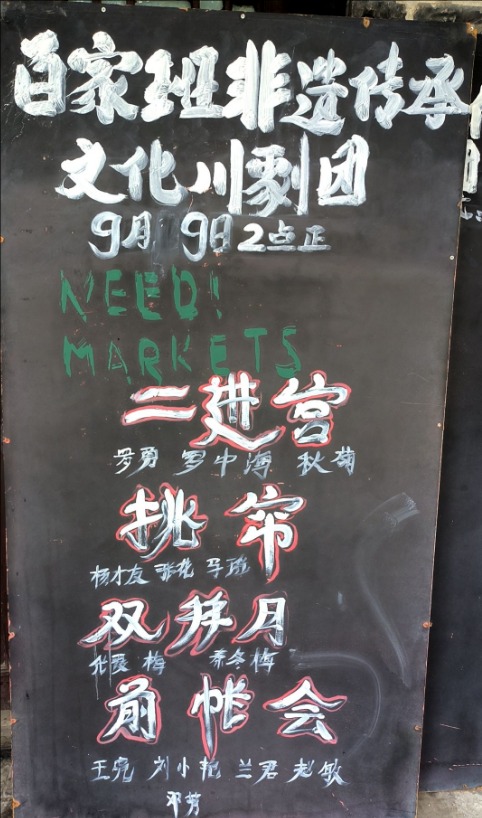 百家班非遗传承
文化川剧团
9月9日2点正
NEED!
MARKETS
二进宫
罗勇 罗中海 秋菊
挑帘
杨才友 张花 马琼
双拜月
梅 乔冬梅
前帐会
王亮 刘小艳 兰君 赵敏
邓芳